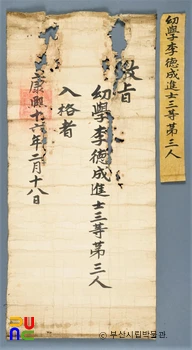 敎旨
幼學李德成進士三等第三人
入格者
康熙十六年二月十八日
幼學李德成進士三等第三人
ⓒ 부산시립박물관